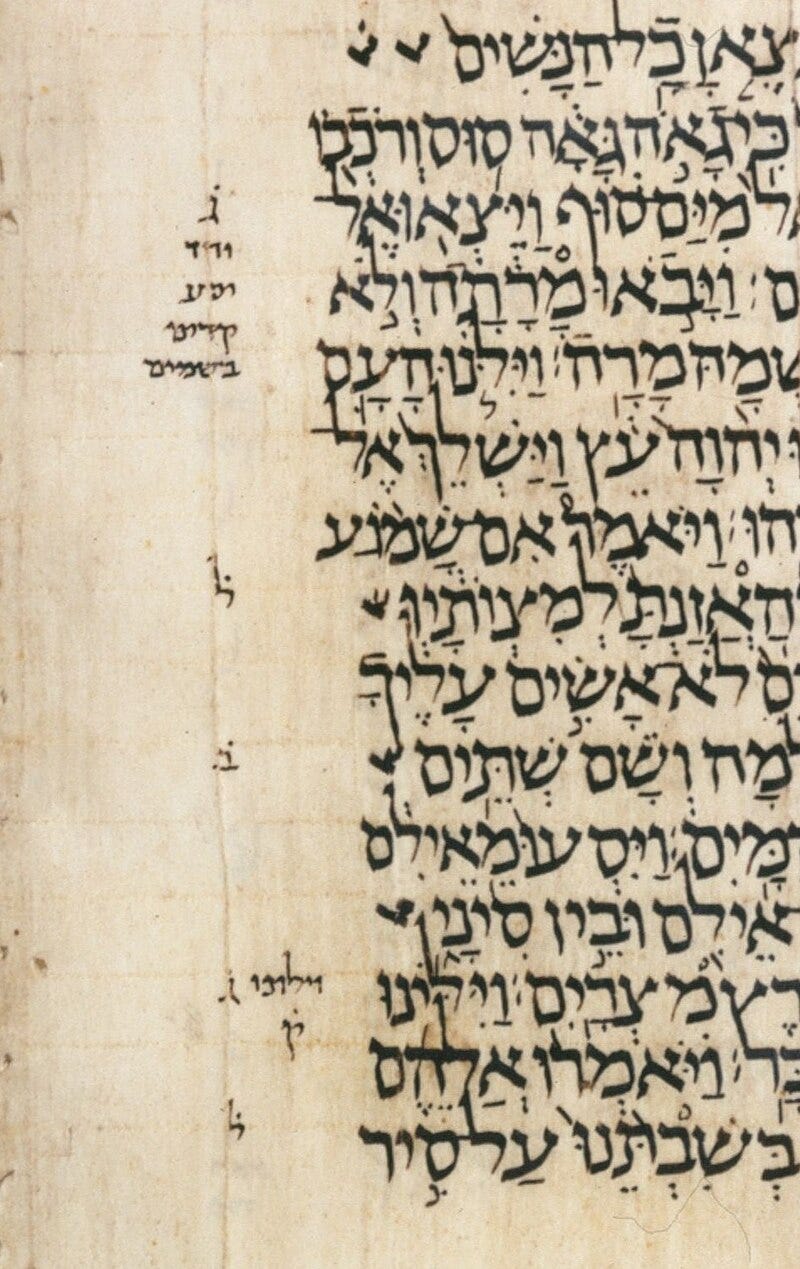 צֶאןָ כָל הַנָּשִׁים
כִּי גָאֹה גָּאָה סוּס וְרֹכְבוֹ
מִיַּם סוּף וַיֵּצְאוּ אֶל
וַיָּבֹאוּ מָרָתָה וְלֹא
שְׁמָהּ מָרָה׃ וַיִּלֹּנוּ הָעָם
יְהוָה עֵץ וַיַּשְׁלֵךְ אֶל
וַיֹּאמֶר אִם שָׁמֹועַ
הַאֲזַנְתָּ לְמִצְוֹתָיו
לֹא אָשִׂים עָלֶיךָ
מָה וְשָׁם שְׁתֵּים
מָּיִם׃ וַיִּסְעוּ מֵאֵילִם
אֵילִם וּבֵין סִינָי
רֶץ מִצְרָיִם׃ וַיִּלִּינוּ
וַיֹּאמְרוּ אֲלֵהֶם
בְּשִׁבְתֵּנוּ עַל סִיר
גׄ
יפע
בשמיים
לׄ
בׄ
וילונו גׄ
ק
לׄ